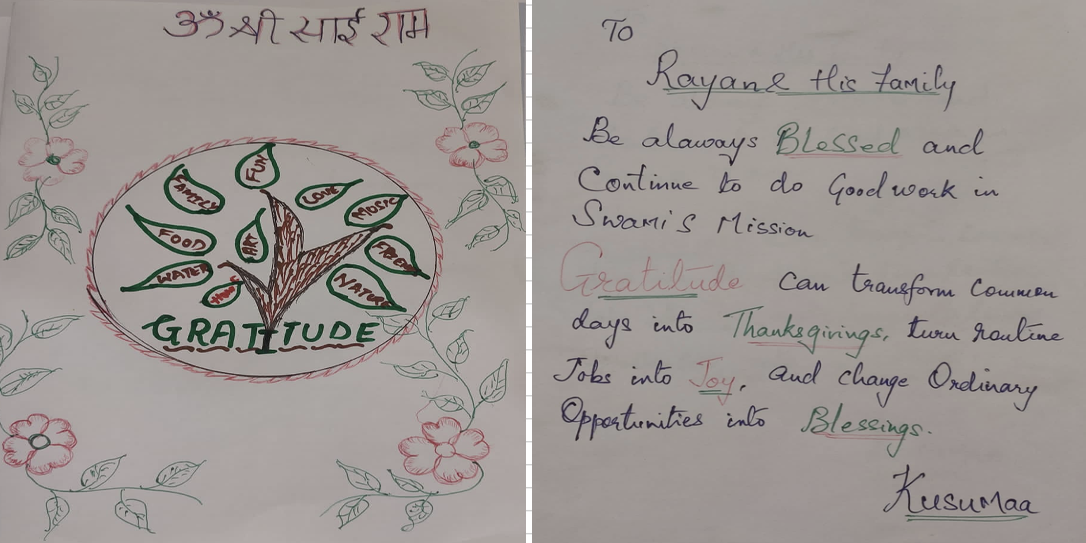 ॐ श्री साई राम
FUN
FAMILY
LOVE
MUSIC
FOOD
ART
WATER
NATURE
GRATITUDE
To
Rayan & His Family
Be alaways Blessed and
Continue to do Good work in
Swami's Mission
Gratitude can transform Common
days into Thanksgivings, turn routine
Jobs into Joy, and change Ordinary
Opportunities into Blessings.
Kusumaa